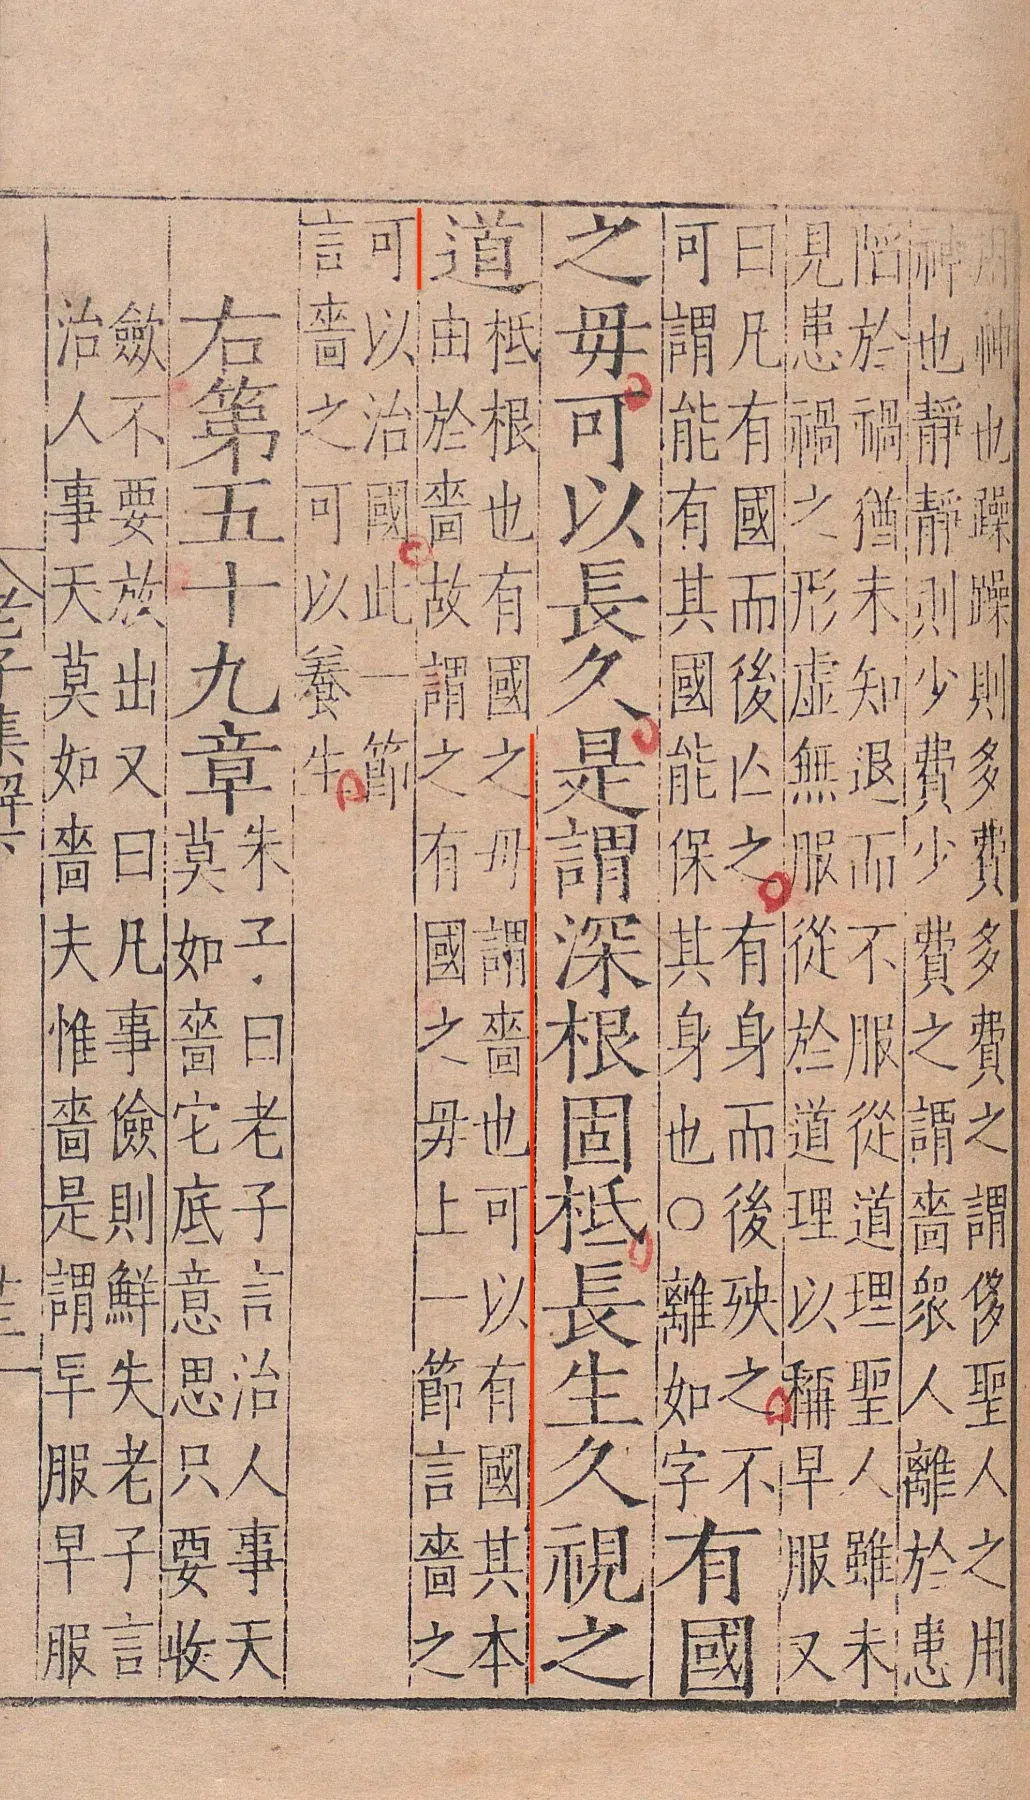 用神也躁躁則多費多費之謂侈聖人之用
神也靜靜則少費少費之謂嗇衆人離於患
陷於禍猶未知退而不服從道理聖人雖未
見患禍之形虛無服從於道理以稱早服又
曰凡有國而後亡之有身而後殃之不
可謂能有其國能保其身也○離如字
有國
之毋可以長久是謂深根固柢長生久視之
道
柢根也有國之毋謂嗇也可以有國其本
由於嗇故謂之有國之毋上一節言嗇之
可以治國此一節
言嗇之可以養生
右第五十九章
朱子曰老子言治人事天
莫如嗇它底意思只要收
斂不要放出又曰凡事儉則鮮失老子言
治人事天莫如嗇夫惟嗇是謂早服早服
老子集解下